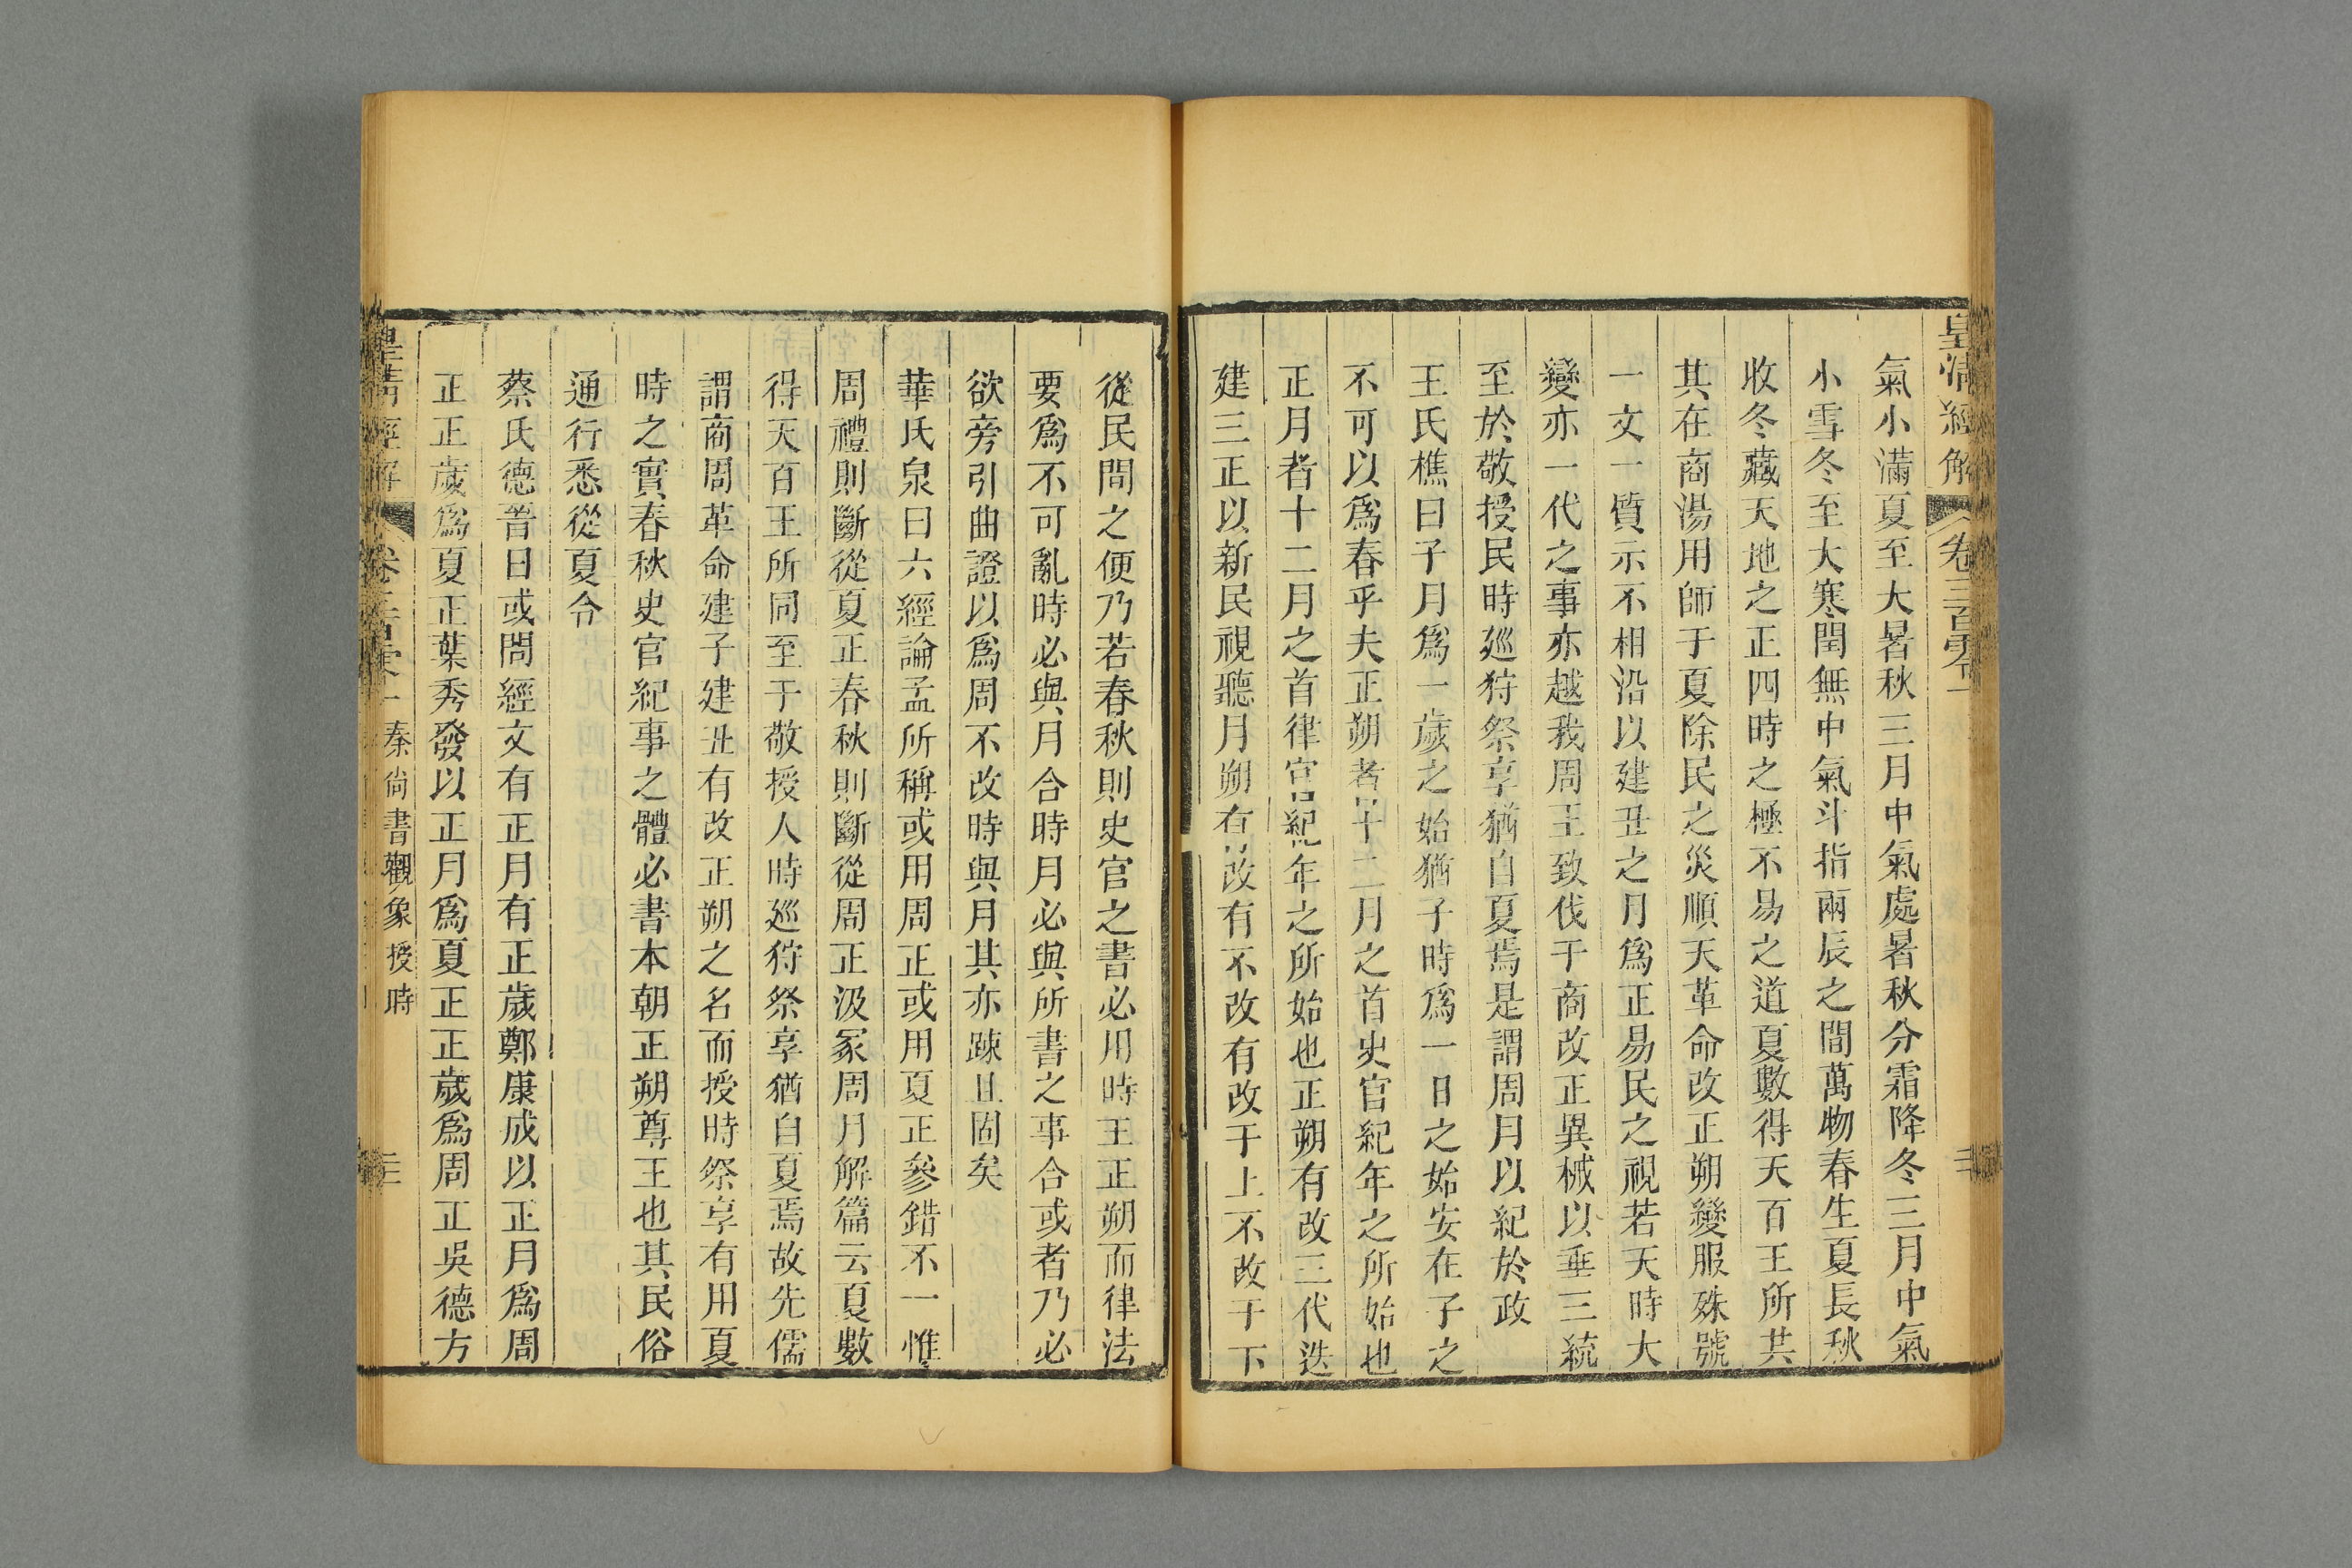 皇清經解 卷三百零一 二
氣小滿夏至大暑秋三月中氣處暑秋分霜降冬三月中氣
小雪冬至大寒閏無中氣斗指兩辰之間萬物春生夏長秋
收冬藏天地之正四時之極不易之道夏數得天百王所共
其在商湯用師于夏除民之災順天革命改正朔變服殊號
一文一質示不相沿以建丑之月爲正易民之視若天時大
變亦一代之事亦越我周王致伐于商改正異械以垂三統
至於敬授民時廵狩祭享猶自夏焉是謂周月以紀於政
王氏樵曰子月爲一歲之始猶子時爲一日之始安在子之
不可以爲春乎夫正朔者十二月之首史官紀年之所始也
正月者十二月之首律官紀年之所始也正朔有改三代迭
建三正以新民視聽月朔有改有不改有改于上不改于下
從民間之便乃若春秋則史官之書必用時王正朔而律法
要爲不可亂時必與月合時月必與所書之事合或者乃必
欲旁引曲證以爲周不改時與月其亦踈且固矣
華氏泉曰六經論孟所稱或用周正或用夏正參錯不一惟
周禮則斷從夏正春秋則斷從周正汲冢周月解篇云夏數
得天百王所同至于敬授人時廵狩祭享猶自夏焉故先儒
謂商周革命建子建丑有改正朔之名而授時祭享有用夏
時之實春秋史官紀事之體必書本朝正朔尊王也其民俗
通行悉從夏令
蔡氏德晉曰或問經文有正月有正歲鄭康成以正月爲周
正正歲爲夏正葉秀發以正月爲夏正正歲爲周正吳德方
皇清經解 卷三百零一 秦尚書觀象授時 三